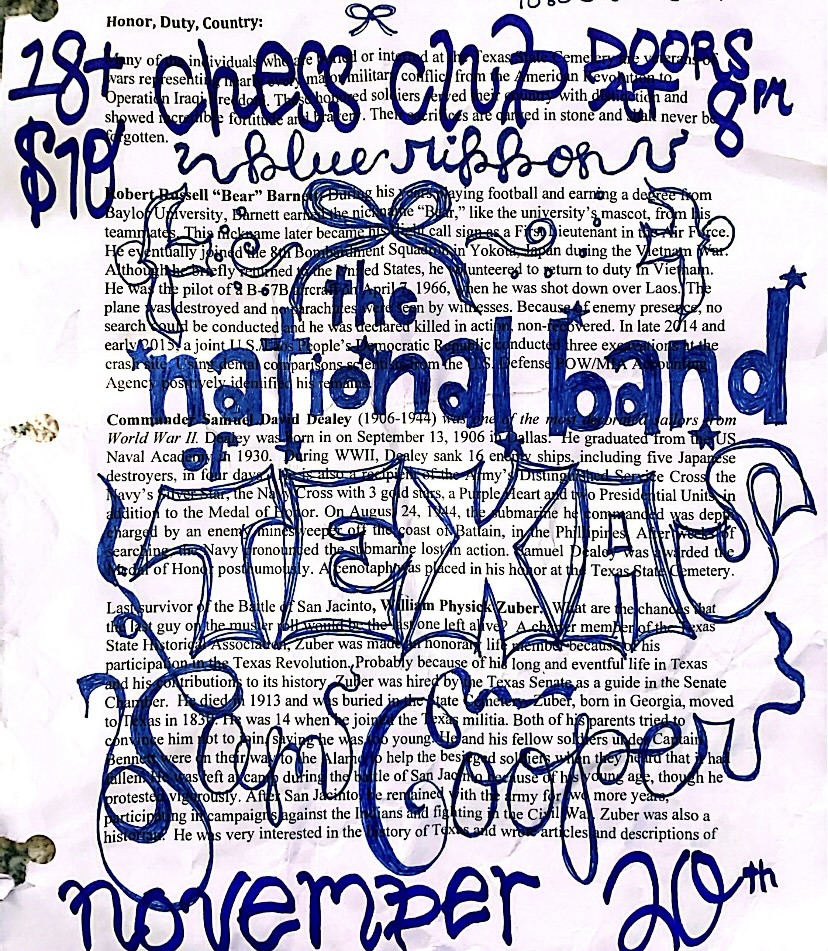 Honor, Duty, Country:
18+ CHESS CLUB DOORS AT 8PM
Many of the individuals who are buried or interred at the Texas State Cemetery are veterans of
wars representing nearly every major military conflict from the American Revolution to
Operation Iraqi Freedom. These honored soldiers served their country with distinction and
showed incredible fortitude and bravery. Their sacrifices are carved in stone and shall never be
forgotten.
$10
blue ribbon
Robert Russell “Bear” Barnett. During his years playing football and earning a degree from
Baylor University, Barnett earned the nickname “Bear,” like the university’s mascot, from his
teammates. This nickname later became his flight call sign as a First Lieutenant in the Air Force.
He eventually joined the 8th Bombardment Squadron in Yokota, Japan during the Vietnam War.
Although he briefly returned to the United States, he volunteered to return to duty in Vietnam.
He was the pilot of a B-67B aircraft on April 7, 1966, when he was shot down over Laos. The
plane was destroyed and no parachutes were seen by witnesses. Because of enemy presence, no
search could be conducted and he was declared killed in action, non-recovered. In late 2014 and
early 2015, a joint U.S./Laos People’s Democratic Republic conducted three excavations at the
crash site. Using dental comparisons scientists from the U.S. Defense POW/MIA Accounting
Agency positively identified his remains.
the
national band
Commander Samuel David Dealey (1906-1944) was one of the most decorated sailors from
World War II. Dealey was born in on September 13, 1906 in Dallas. He graduated from the US
Naval Academy in 1930. During WWII, Dealey sank 16 enemy ships, including five Japanese
destroyers, in four days. He is also a recipient of the Army’s Distinguished Service Cross, the
Navy’s Silver Star, the Navy Cross with 3 gold stars, a Purple Heart and two Presidential Units, in
addition to the Medal of Honor. On August 24, 1944, the submarine he commanded was depth
charged by an enemy minesweeper off the coast of Battain, in the Phillipines. After weeks of
searching, the Navy pronounced the submarine lost in action. Samuel Dealey was awarded the
Medal of Honor posthumously. A cenotaph was placed in his honor at the Texas State Cemetery.
of
TEXAS
Last survivor of the Battle of San Jacinto, William Physick Zuber. What are the chances that
the last guy on the muster roll would be the last one left alive? A charter member of the Texas
State Historical Association, Zuber was made an honorary life member because of his
participation in the Texas Revolution. Probably because of his long and eventful life in Texas
and his contributions to its history, Zuber was hired by the Texas Senate as a guide in the Senate
Chamber. He died in 1913 and was buried in the State Cemetery. Zuber, born in Georgia, moved
to Texas in 1830. He was 14 when he joined the Texas militia. Both of his parents tried to
convince him not to join, saying he was too young. He and his fellow soldiers under Captain
Bennett were on their way to the Alamo to help the besieged soldiers when they heard that it had
fallen. He was left at camp during the battle of San Jacinto because of his young age, though he
protested vigorously. After San Jacinto, he remained with the army for two more years,
participating in campaigns against the Indians and fighting in the Civil War. Zuber was also a
historian. He was very interested in the history of Texas and wrote articles and descriptions of
Sam Cooper
november 20th